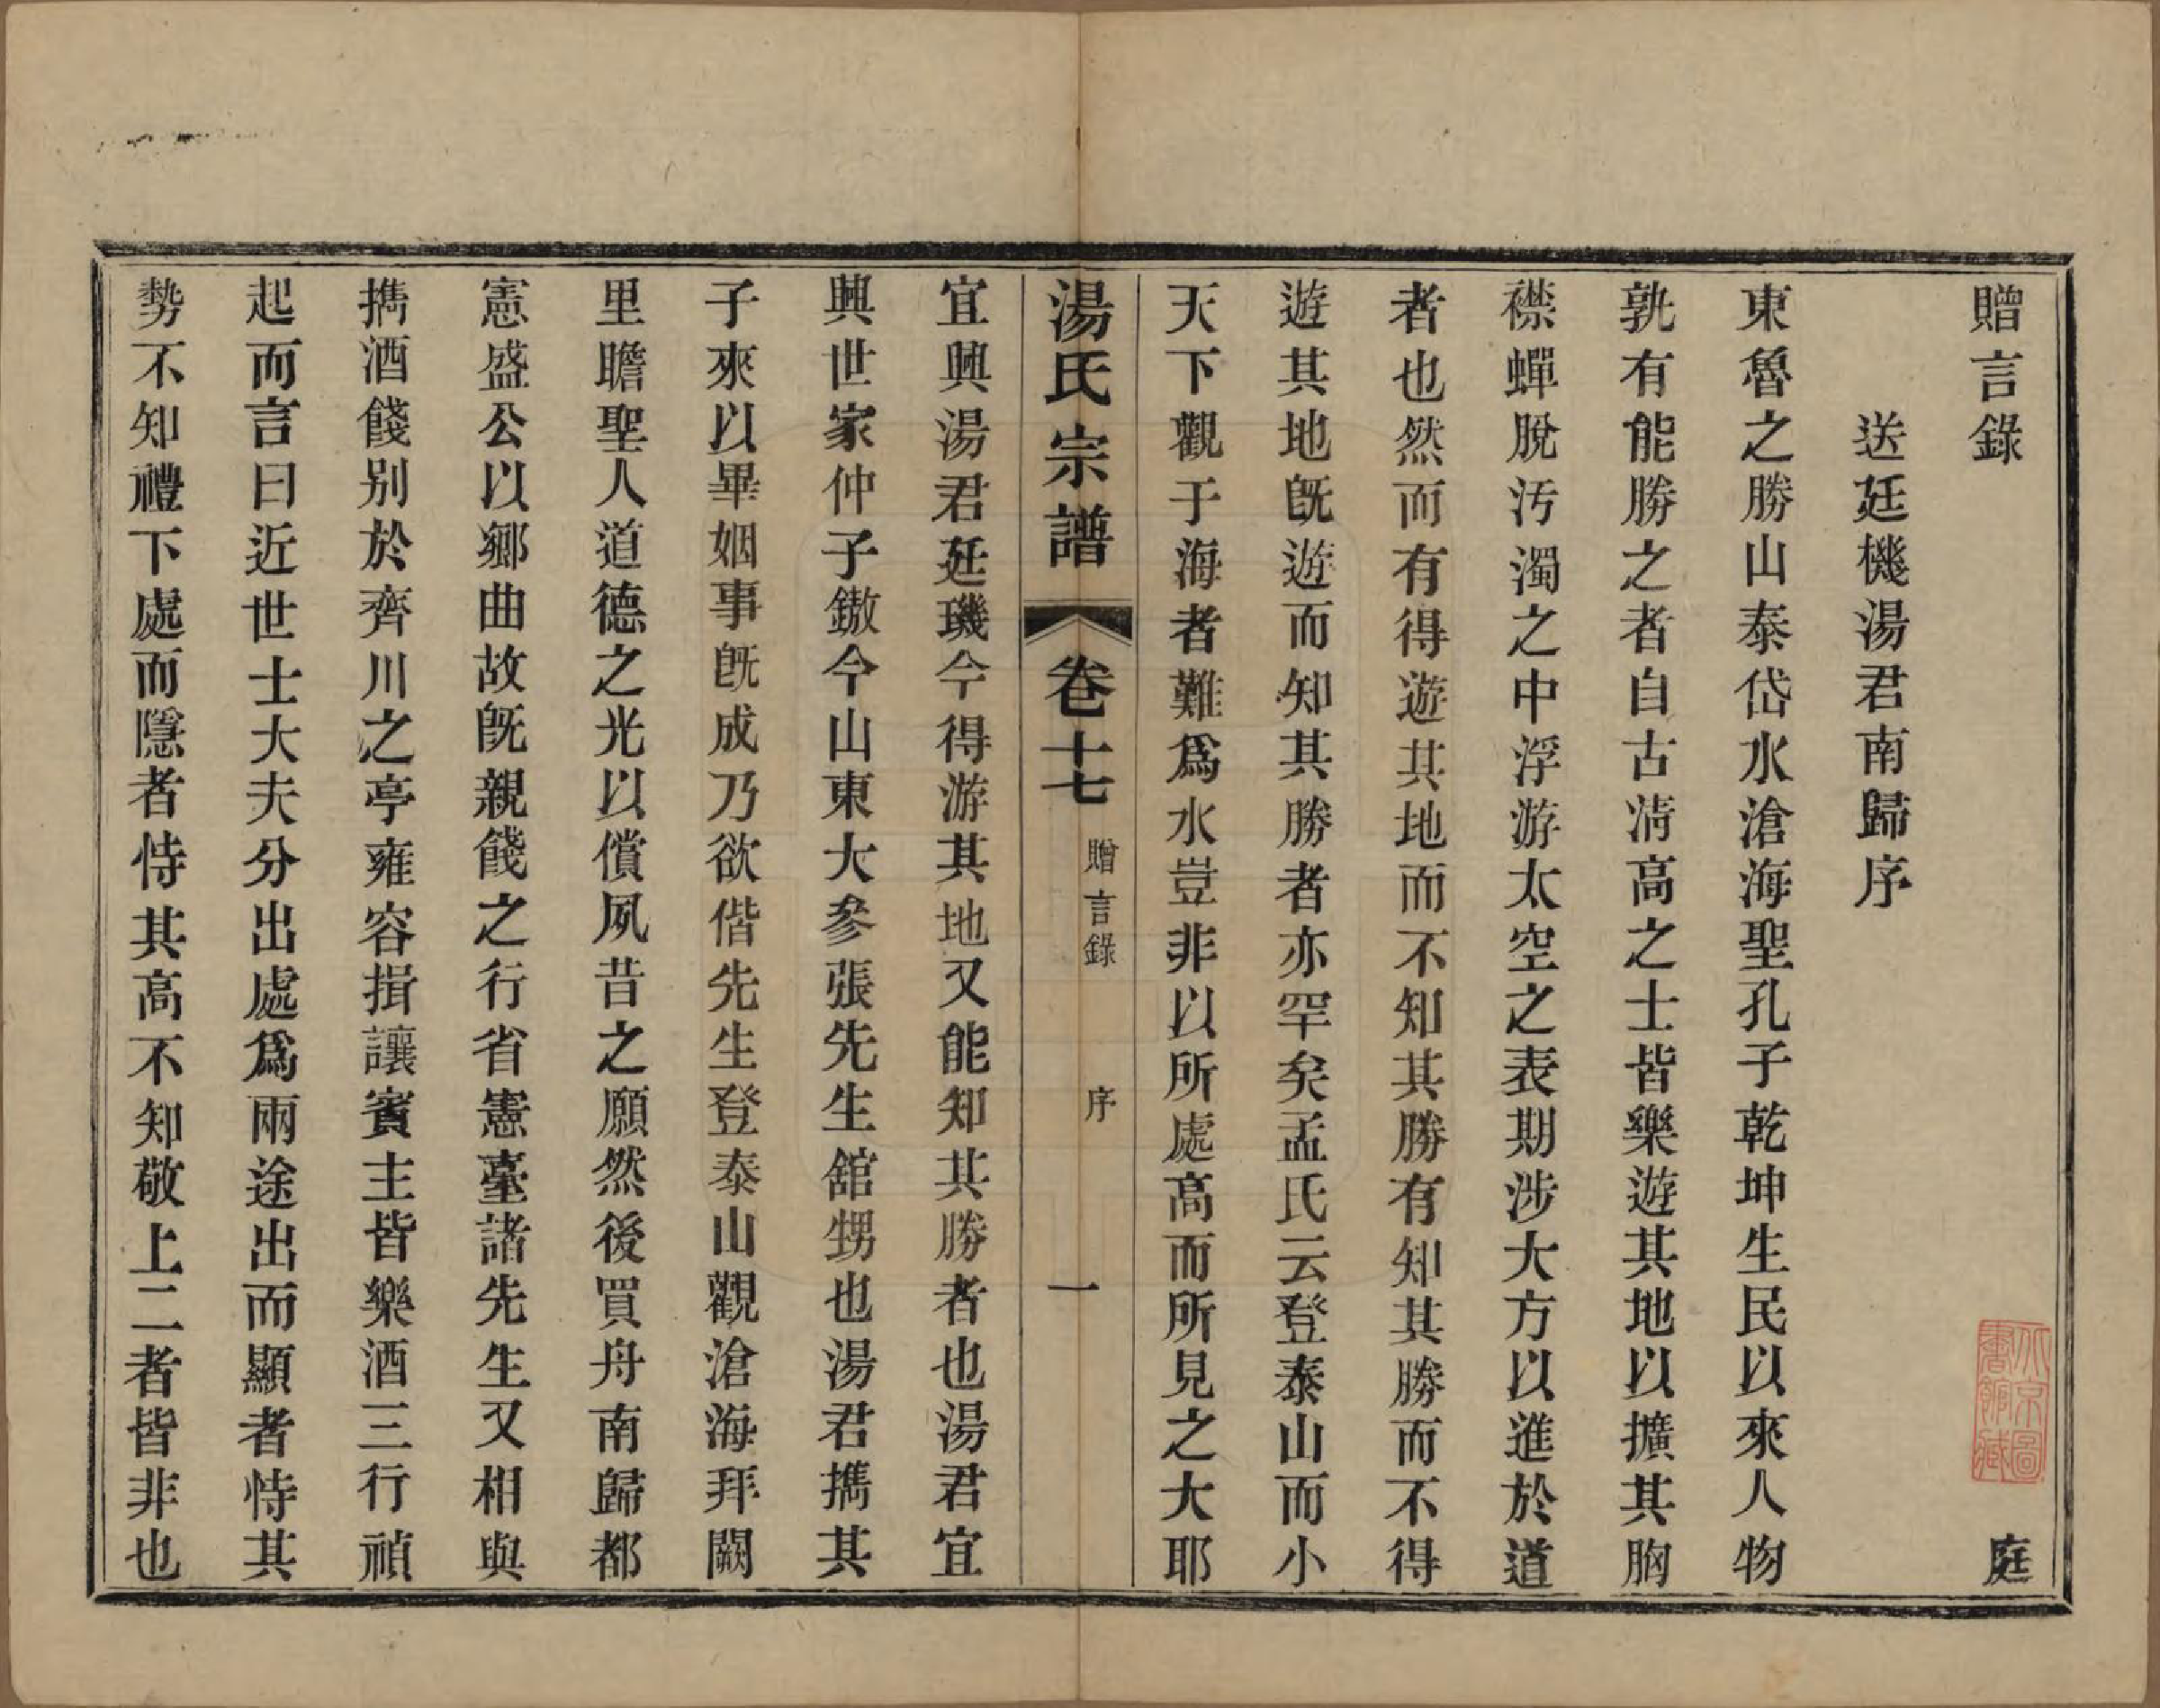 贈言錄　庭
送廷機湯君南歸序
東魯之勝山泰岱水滄海聖孔子乾坤生民以來人物
孰有能勝之者自古淸高之士皆樂遊其地以擴其胸
襟蟬脫汚濁之中浮游太空之表期涉大方以進於道
者也然而有得遊其地而不知其勝有知其勝而不得
遊其地旣遊而知其勝者亦罕矣孟氏云登泰山而小
天下觀于海者難爲水豈非以所處高而所見之大耶
湯氏宗譜　卷十七　贈言錄　序　一
宜興湯君廷璣今得游其地又能知其勝者也湯君宜
興世家仲子鏾今山東大參張先生舘甥也湯君携其
子來以畢姻事旣成乃欲偕先生登泰山觀滄海拜闕
里瞻聖人道德之光以償夙昔之願然後買舟南歸都
憲盛公以鄉曲故旣親餞之行省憲臺諸先生又相與
携酒餞別於齊川之亭雍容揖讓賓主皆樂酒三行禎
起而言曰近世士大夫分出處爲兩途出而顯者恃其
勢不知禮下處而隱者恃其高不知敬上二者皆非也
大京圖書館藏